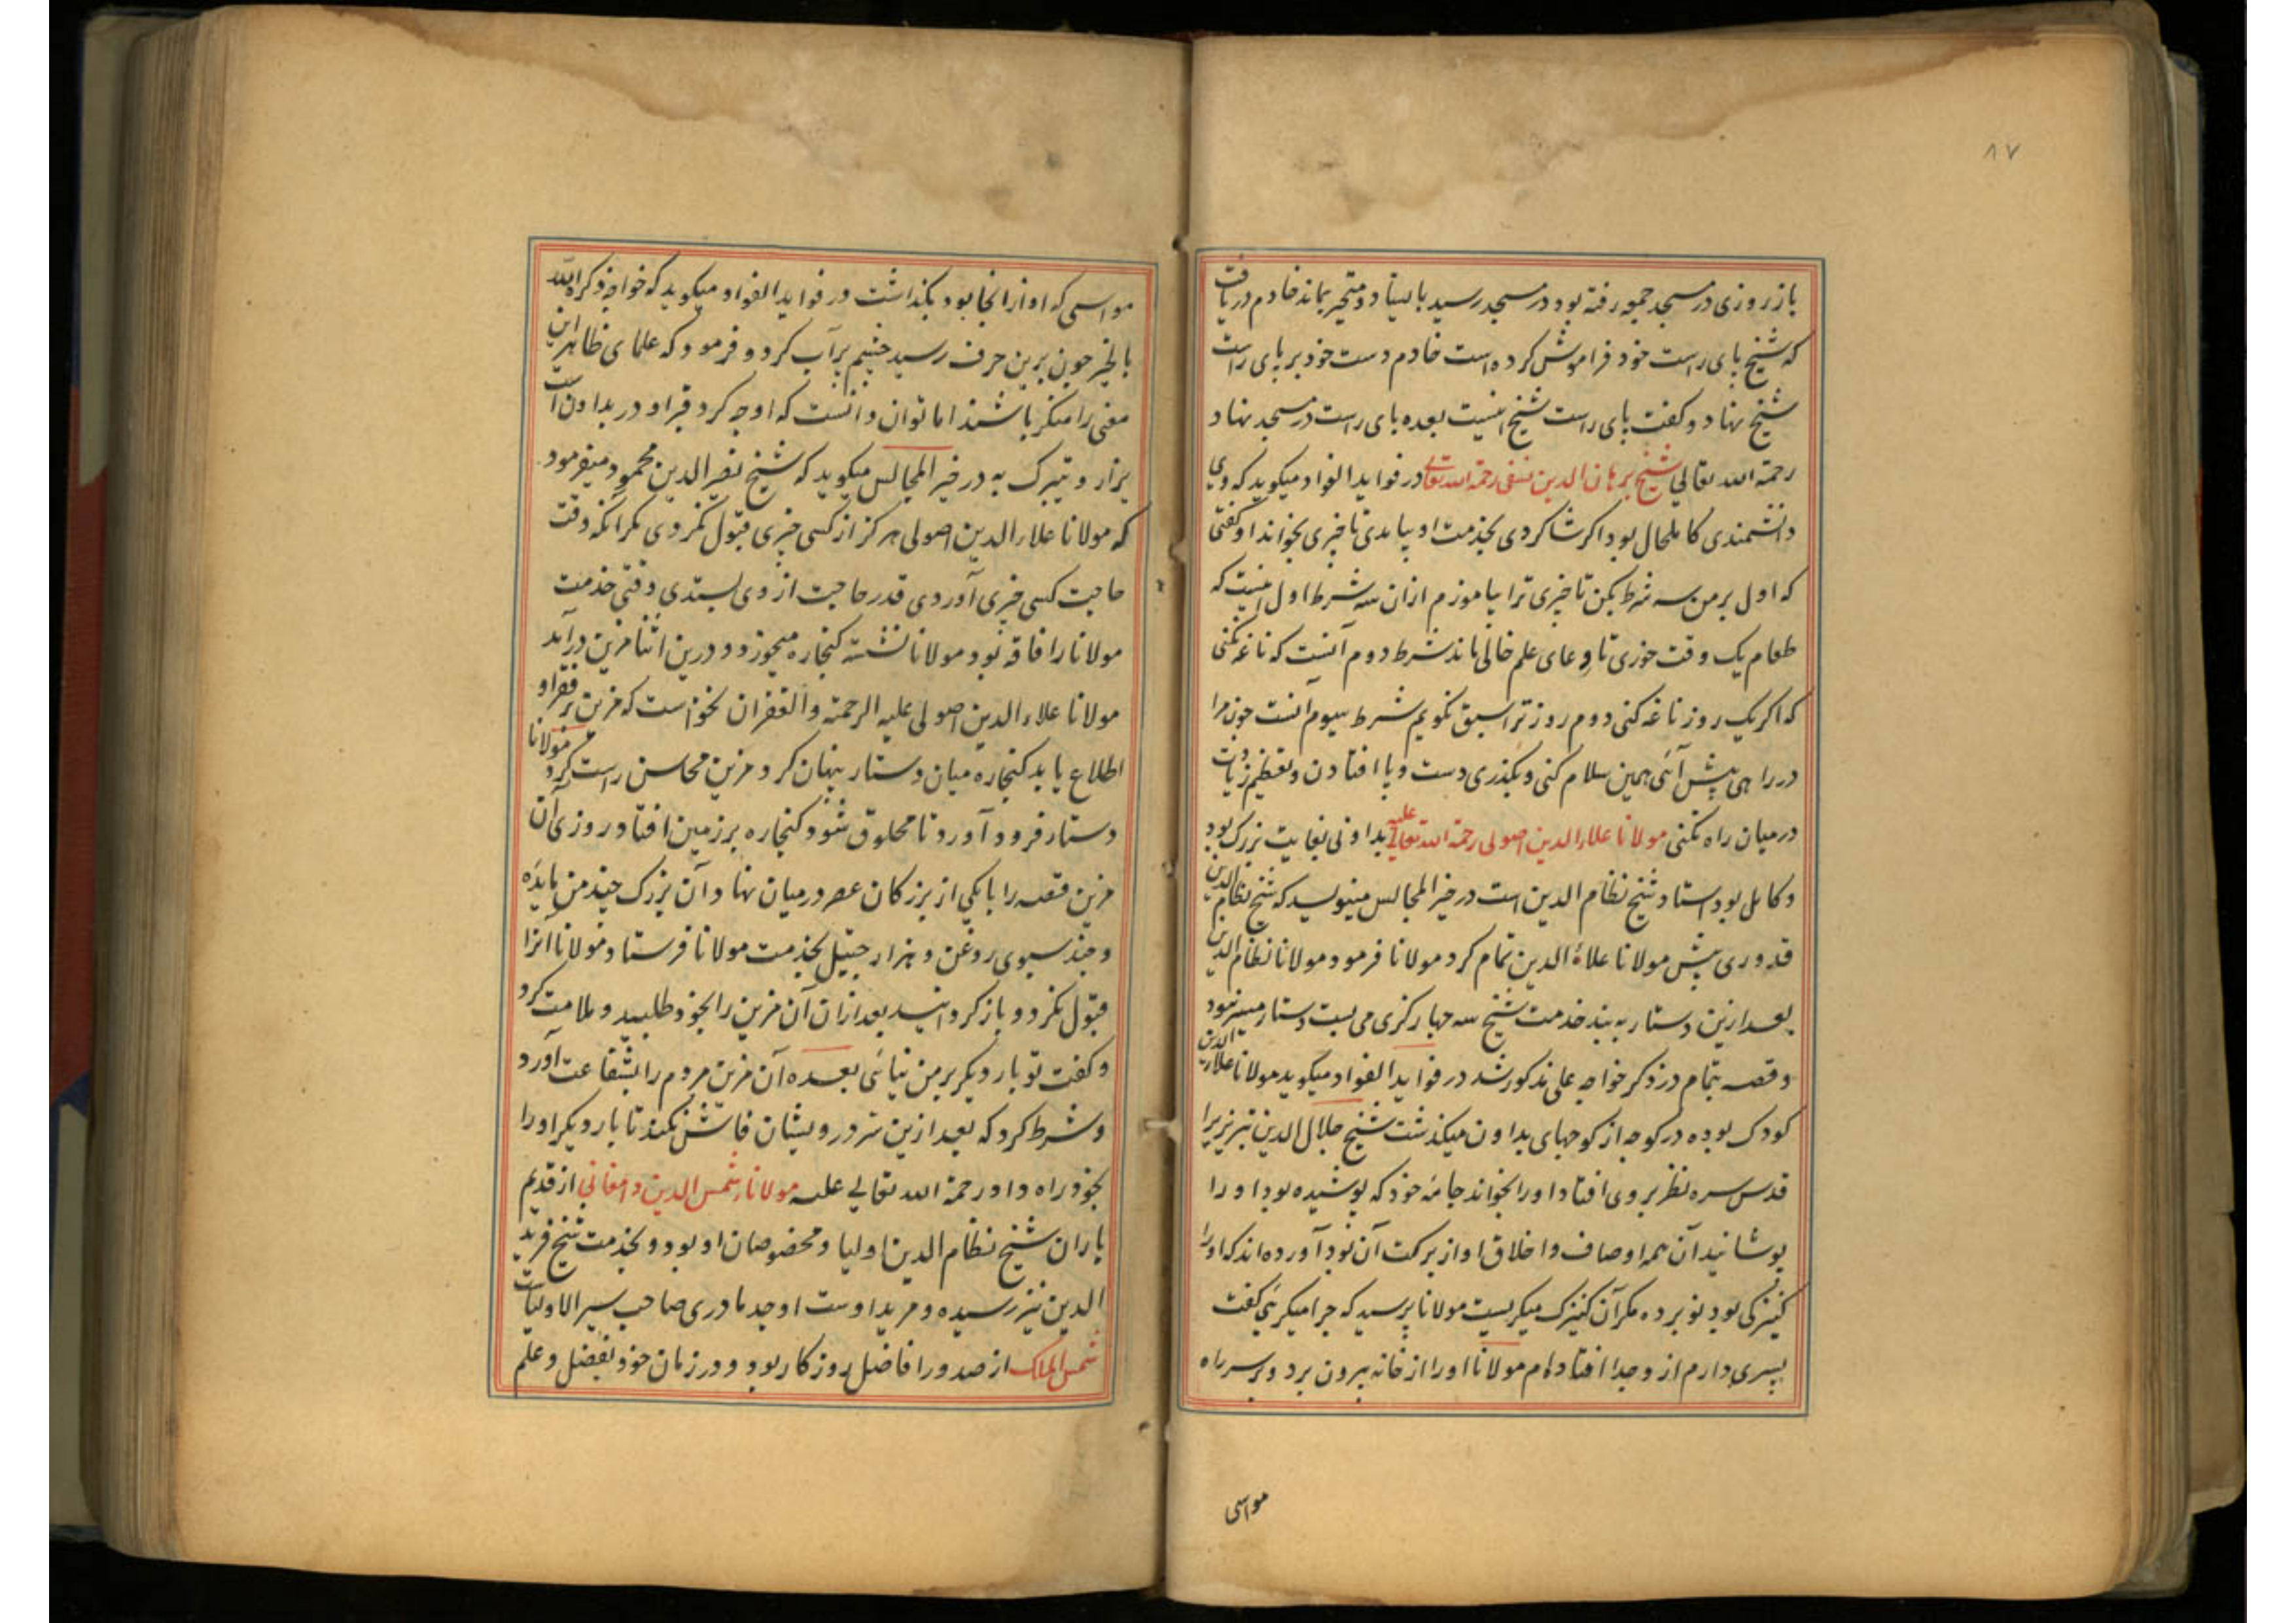 ۸۷
باز روزی در مسجد جمعه رفته بود در مسجد رسید بایستاد و متحیر بماند خادم دریافت
که شیخ پای راست خود فراموش کرده است خادم دست خود بر پای راست
شیخ نهاد و کفت پای راست شیخ اینست بعده پای راست در مسجد نهاد
رحمة الله تعالی شیخ برهان الدین نسفی رحمة الله تعالی در فواید الفواد میکوید که وی
دانشمندی کامل حال بود اکر شاکردی بخدمت او بیامدی تا چیزی بخواند او کفتی
که اول بر من سه شرط بکن تا چیزی ترا بیاموزم ازان سه شرط اول اینست که
طعام یک وقت خوری تا وعای علم خالی ماند شرط دوم آنست که ناغه نکنی
که اکر یک روز ناغه کنی دوم روز ترا سبق نکویم شرط سیوم آنست چون مرا
در راهی پیش آئی همین سلام کنی و بکذری دست و پا افتادن و تعظیم زیادت
درمیان راه نکنی مولانا علاء الدین اصولی رحمة الله تعالی علیه بداونی بغایت بزرک بود
و کامل بود استاد شیخ نظام الدین است در خیر المجالس مینویسد که شیخ نظام الدین
قدوری پیش مولانا علاء الدین تمام کرد مولانا فرمود مولانا نظام الدین
بعد ازین دستار به بند خدمت شیخ سه چهار کزی می بست دستار میسر نبود
و قصه بتمام در ذکر خواجه علی مذکور شد در فواید الفواد میکوید مولانا علاء الدین
کودک بوده در کوچه از کوچهای بداون میکذشت شیخ جلال الدین تبریزیرا
قدس سره نظر بر وی افتاد اورا بخواند جامه خود که پوشیده بود اورا
پوشانید آن همه اوصاف و اخلاق او از برکت آن بود آورده اند که اورا
کنیزکی بود نو برده مکر آن کنیزک میکریست مولانا پرسید که چرا میکریی کفت
پسری دارم از و جدا افتاده ام مولانا اورا از خانه بیرون برد و بر سر راه
مواسی
مواسی که او از انجا بود بکذاشت در فواید الفواد میکوید که خواجه ذکره الله
بالخیر چون برین حرف رسید چشم پرآب کرد و فرمود که علمای ظاهر این
معنی را منکر باشند اما توان دانست که او چه کرد قبر او در بداون است
یزار و یتبرک به در خیر المجالس میکوید که شیخ نصیر الدین محمود میفرمود
که مولانا علاء الدین اصولی هرکز از کسی چیزی قبول نکردی مکر انکه وقت
حاجت کسی چیزی آوردی قدر حاجت از وی بستدی وقتی خدمت
مولانا را فاقه بود مولانا نشسته کنجاره میخورد و درین اثنا مزین درآمد
مولانا علاء الدین اصولی علیه الرحمة والغفران نخواست که مزین بر فقر او
اطلاع یابد کنجاره میان دستار پنهان کرد مزین محاسن راست کرد مولانا
دستار فرود آورد تا محلوق شود کنجاره بر زمین افتاد روزی آن
مزین قصه را با یکی از بزرکان عصر درمیان نهاد آن بزرک چند من مایده
و چند سبوی روغن و هزار جیتل بخدمت مولانا فرستاد مولانا انرا
قبول نکرد و باز کردانید بعد ازان آن مزین را بخود طلبید و ملامت کرد
و کفت تو بار دیکر بر من نیائی بعده آن مزین مردم را بشفاعت آورد
و شرط کرد که بعد ازین سر درویشان فاش نکند تا بار دیکر اورا
بخود راه داد رحمة الله تعالی علیه مولانا شمس الدین دامغانی از قدیم
یاران شیخ نظام الدین اولیا و مخصوصان او بود و بخدمت شیخ فرید
الدین نیز رسیده و مرید اوست او جد مادری صاحب سیر الاولیاست
شمس الملک از صدور افاضل روزکار بود و در زمان خود بفضل و علم